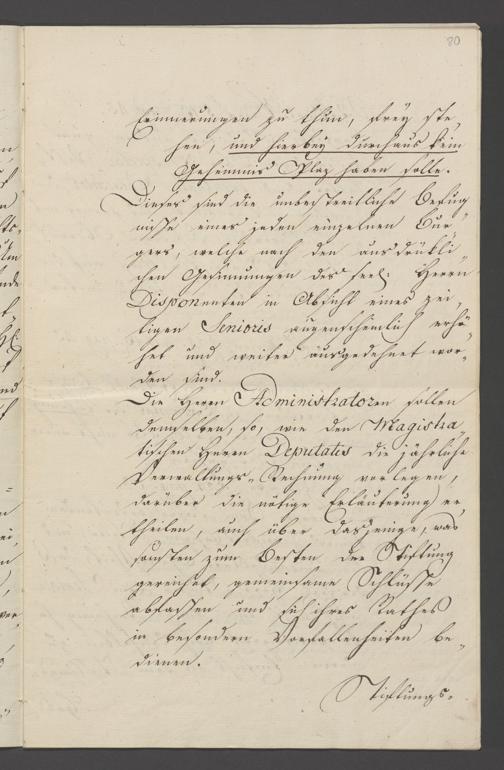 80
Erinnerungen zu thun, frey ste„
hen, und hierbey durchaus kein
Geheimnis Plaz haben solle.
Dieses sind die unbestreitliche Befug„
nisse eines jeden einzelnen Bür„
gers, welche nach den ausdrückli„
chen Gesinnungen des seel: Herrn
Disponenten in Absicht eines zei„
tigen Senioris augenscheinlich erhö„
het und weiter ausgedehnet wor„
den sind.
Die Herrn Administratoren sollen
demselben, so, wie den Magistra„
tischen Herrn Deputatis die jährliche
Verwaltungs-Rechnung vorlegen,
darüber die nötige Erläuterung er„
theilen, auch über dasjenige, was
sonsten zum Besten der Stiftung
gereichet, gemeinsame Schlüsse
abfassen und sich ihres Rathes
in besondern Vorfallenheiten be„
dienen.
Stiftungs-